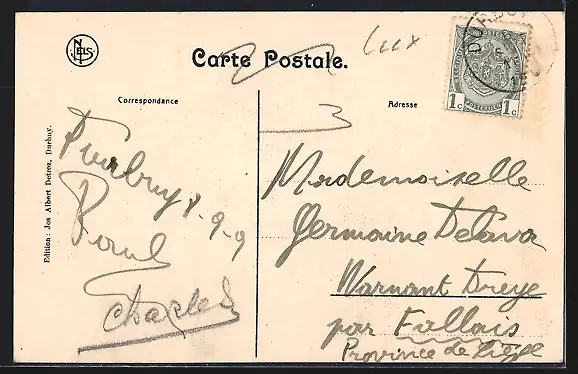 NELS
Carte Postale.
Lux
DURBUY
1c 1c
Correspondance
Adresse
3
Edition: Jos Albert Detroz, Durbuy.
Durbuy 8-9-9
Paul
Charles
Mademoiselle
Germaine Delava
Warnant Dreye
par Fallais
Province de Liège